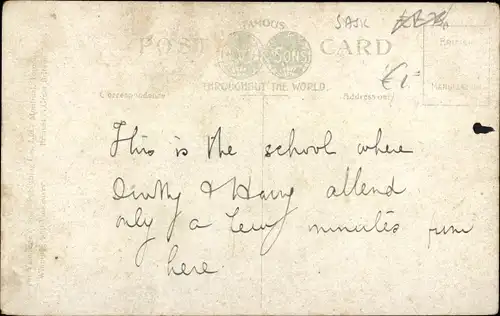 FAMOUS
SASK
POST CARD
& SONS
THROUGHOUT THE WORLD.
Correspondence Address only
BRITISH
MANUFACTURE
This is the school where
& Harry attend
only a few minutes from
here